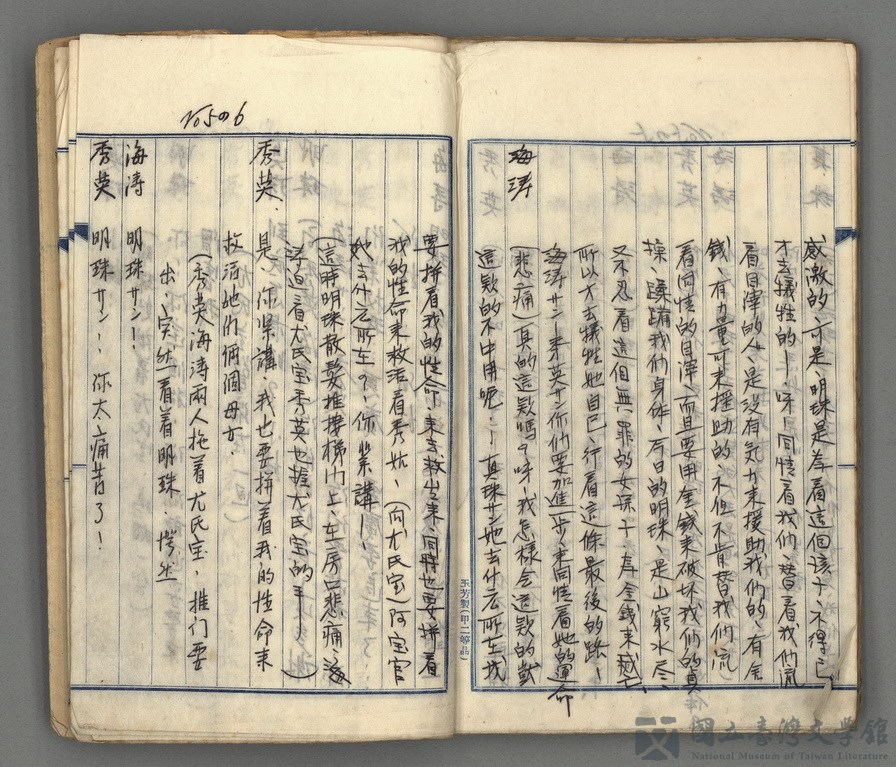 感激的、可是、明珠是為着這個孩子、不得已、
才去犧牲的！呀！同情着我們、替着我們流
着目滓的人、是沒有氣力来援助我們的、有金
錢、有力量可来援助的、不但不肯替我們流
着同情的目滓、而且要用金錢来破坏我們的貞
操、蹂躪我們身体、今日的明珠、是山窮水尽、
又不忍看這個無罪的女孩子、為金錢来
所以才去犧牲她自己、行着這條最後的路！
海濤サン！秀英サン你們要加進一步、来同情着她的運命
海濤 (悲痛)真的這款嗎？呀、我怎樣会這款的
這款的不中用呢！！真珠サン她去什么所在、我
玉芳製(甲二等品)
No 5の6
要拼着我的性命、来去救出来、同時也要拼着
我的性命来救活着秀姑、(向尤氏宝)阿宝官
她去什么所在？、你緊講！、
(這時明珠散髮推接梯门上、在房口悲痛、海
濤迫着尤氏宝秀英也握尤氏宝的手)
秀英 是、你緊講、我也要拼着我的性命来
救活她们倆個母女、
(秀英海濤兩人拖着尤氏宝、推门要
出、突然看着明珠、愕然
海濤 明珠サン！、
秀英 明珠サン！、你太痛苦了！
國立臺灣文學館
National Museum of Taiwan Literature